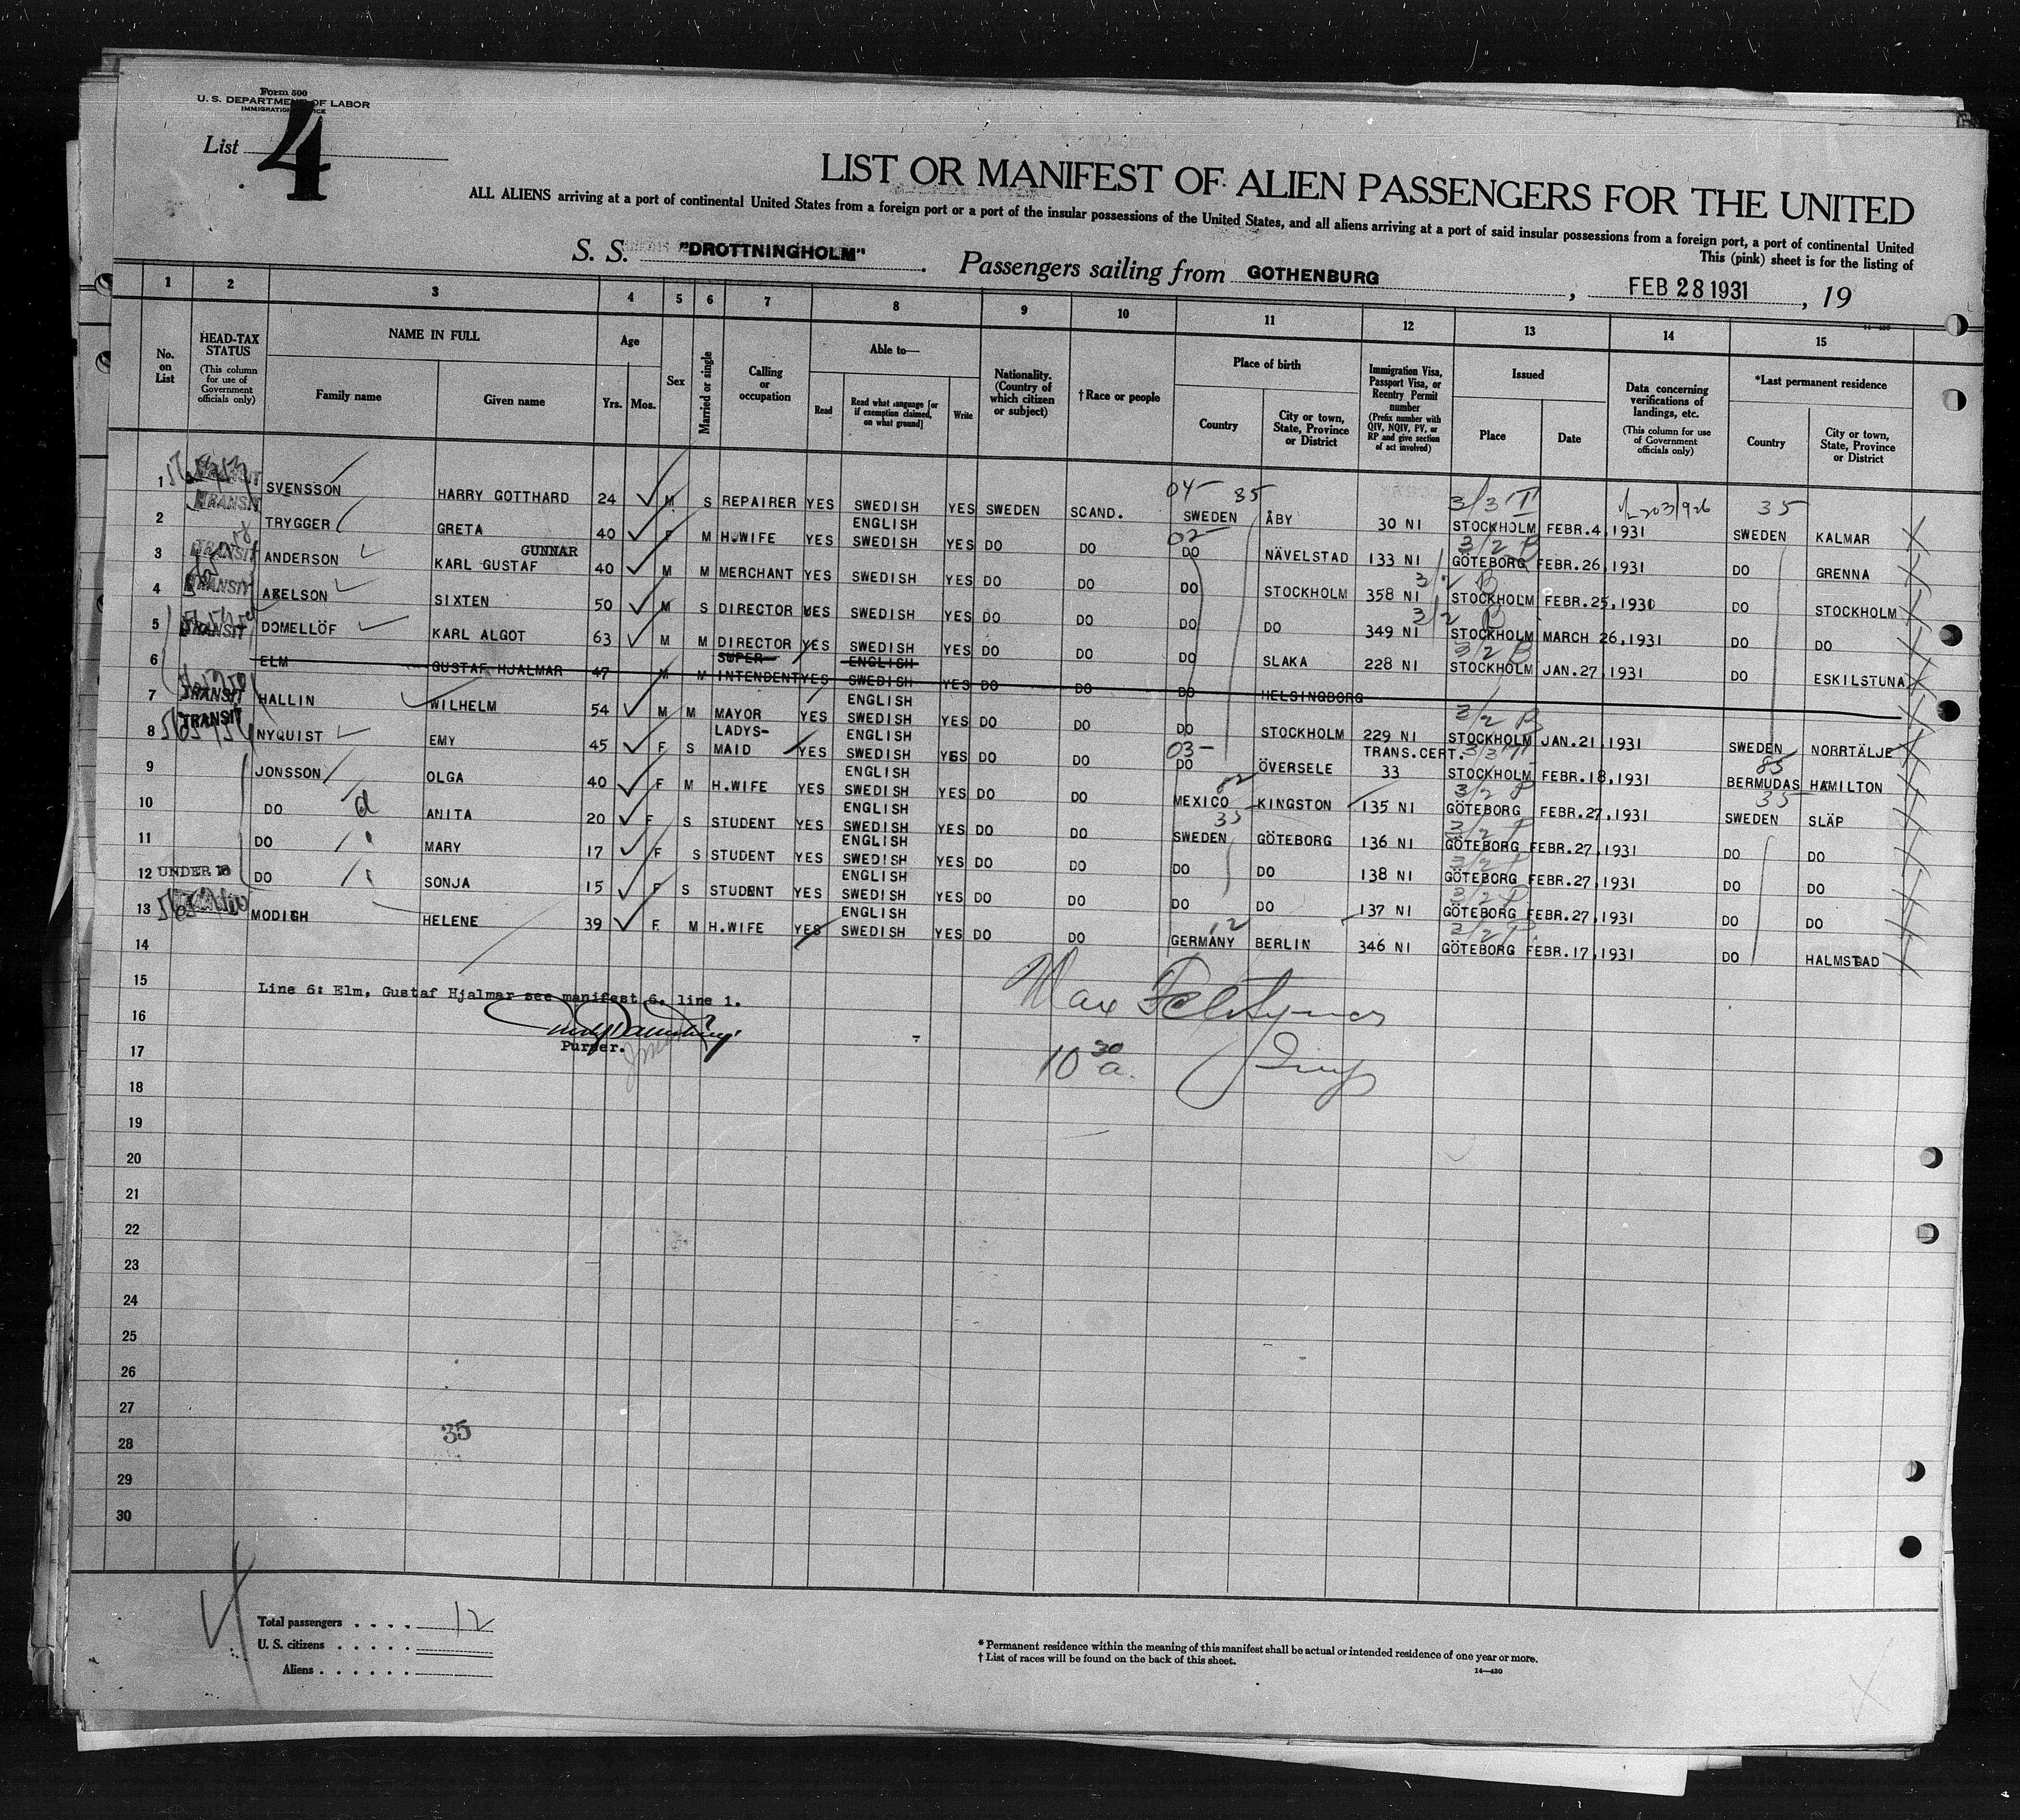 Form 500
U. S. DEPARTMENT OF LABOR
IMMIGRATION SERVICE
List 4
LIST OR MANIFEST OF ALIEN PASSENGERS FOR THE UNITED
ALL ALIENS arriving at a port of continental United States from a foreign port or a port of the insular possessions of the United States, and all aliens arriving at a port of said insular possessions from a foreign port, a port of continental United
This (pink) sheet is for the listing of
S. S. "DROTTNINGHOLM". Passengers sailing from GOTHENBURG, FEB 28 1931, 19
1 2 3 4 5 6 7 8 9 10 11 12 13 14 15
No. on List
HEAD-TAX STATUS
(This column for use of Government officials only)
NAME IN FULL
Family name
Given name
Age
Yrs. Mos.
Sex
Married or single
Calling or occupation
Able to—
Read
Read what language [or if exemption claimed, on what ground]
Write
Nationality. (Country of which citizen or subject)
†Race or people
Place of birth
Country
City or town, State, Province or District
Immigration Visa, Passport Visa, or Reentry Permit number
(Prefix number with QIV, NQIV, PV, or RP and give section of act involved)
Issued
Place
Date
Data concerning verifications of landings, etc.
(This column for use of Government officials only)
*Last permanent residence
Country
City or town, State, Province or District
04- 35 3/3 T 203/926 35
1 TRANSIT SVENSSON HARRY GOTTHARD 24 M S REPAIRER YES SWEDISH YES SWEDEN SCAND. SWEDEN ÅBY 30 NI STOCKHOLM FEBR.4,1931 SWEDEN KALMAR
02- 3/2 B
2 TRANSIT TRYGGER GRETA 40 F M H.WIFE YES ENGLISH SWEDISH YES DO DO DO NÄVELSTAD 133 NI GÖTEBORG FEBR.26,1931 DO GRENNA
3/2 B
3 TRANSIT ANDERSON KARL GUSTAF GUNNAR 40 M M MERCHANT YES SWEDISH YES DO DO DO STOCKHOLM 358 NI STOCKHOLM FEBR.25,1931 DO STOCKHOLM
3/2 B
4 TRANSIT AXELSON SIXTEN 50 M S DIRECTOR YES SWEDISH YES DO DO DO DO 349 NI STOCKHOLM MARCH 26,1931 DO DO
3/2 B
5 TRANSIT DOMELLÖF KARL ALGOT 63 M M DIRECTOR YES SWEDISH YES DO DO DO SLAKA 228 NI STOCKHOLM JAN.27,1931 DO ESKILSTUNA
6 ELM GUSTAF HJALMAR 47 M M SUPER INTENDENT YES ENGLISH SWEDISH YES DO DO DO HELSINGBORG
3/2 B
7 TRANSIT HALLIN WILHELM 54 M M MAYOR YES ENGLISH SWEDISH YES DO DO DO STOCKHOLM 229 NI STOCKHOLM JAN.21,1931 SWEDEN NORRTÄLJE
03- 3/3 T 85
8 TRANSIT NYQUIST EMY 45 F S LADYS-MAID YES ENGLISH SWEDISH YES DO DO DO ÖVERSELE TRANS.CERT. 33 STOCKHOLM FEBR.18,1931 BERMUDAS HAMILTON
82 3/2 P 35
9 JONSSON OLGA 40 F M H.WIFE YES ENGLISH SWEDISH YES DO DO MEXICO KINGSTON 135 NI GÖTEBORG FEBR.27,1931 SWEDEN SLÄP
35 3/2 P
10 DO d ANITA 20 F S STUDENT YES ENGLISH SWEDISH YES DO DO SWEDEN GÖTEBORG 136 NI GÖTEBORG FEBR.27,1931 DO DO
3/2 P
11 DO MARY 17 F S STUDENT YES ENGLISH SWEDISH YES DO DO DO DO 138 NI GÖTEBORG FEBR.27,1931 DO DO
3/2 P
12 UNDER 16 DO SONJA 15 F S STUDENT YES ENGLISH SWEDISH YES DO DO DO DO 137 NI GÖTEBORG FEBR.27,1931 DO DO
12 3/2 P.
13 MODIGH HELENE 39 F M H.WIFE YES ENGLISH SWEDISH YES DO DO GERMANY BERLIN 346 NI GÖTEBORG FEBR.17,1931 DO HALMSTAD
14
15 Line 6: Elm, Gustaf Hjalmar see manifest 6. line 1.
Max
16
Purser.
10 30 a. Insp
17
18
19
20
21
22
23
24
25
26
27
35
28
29
30
Total passengers . . . . 12
U. S. citizens . . . . .
Aliens . . . . . .
* Permanent residence within the meaning of this manifest shall be actual or intended residence of one year or more.
† List of races will be found on the back of this sheet.
14—430